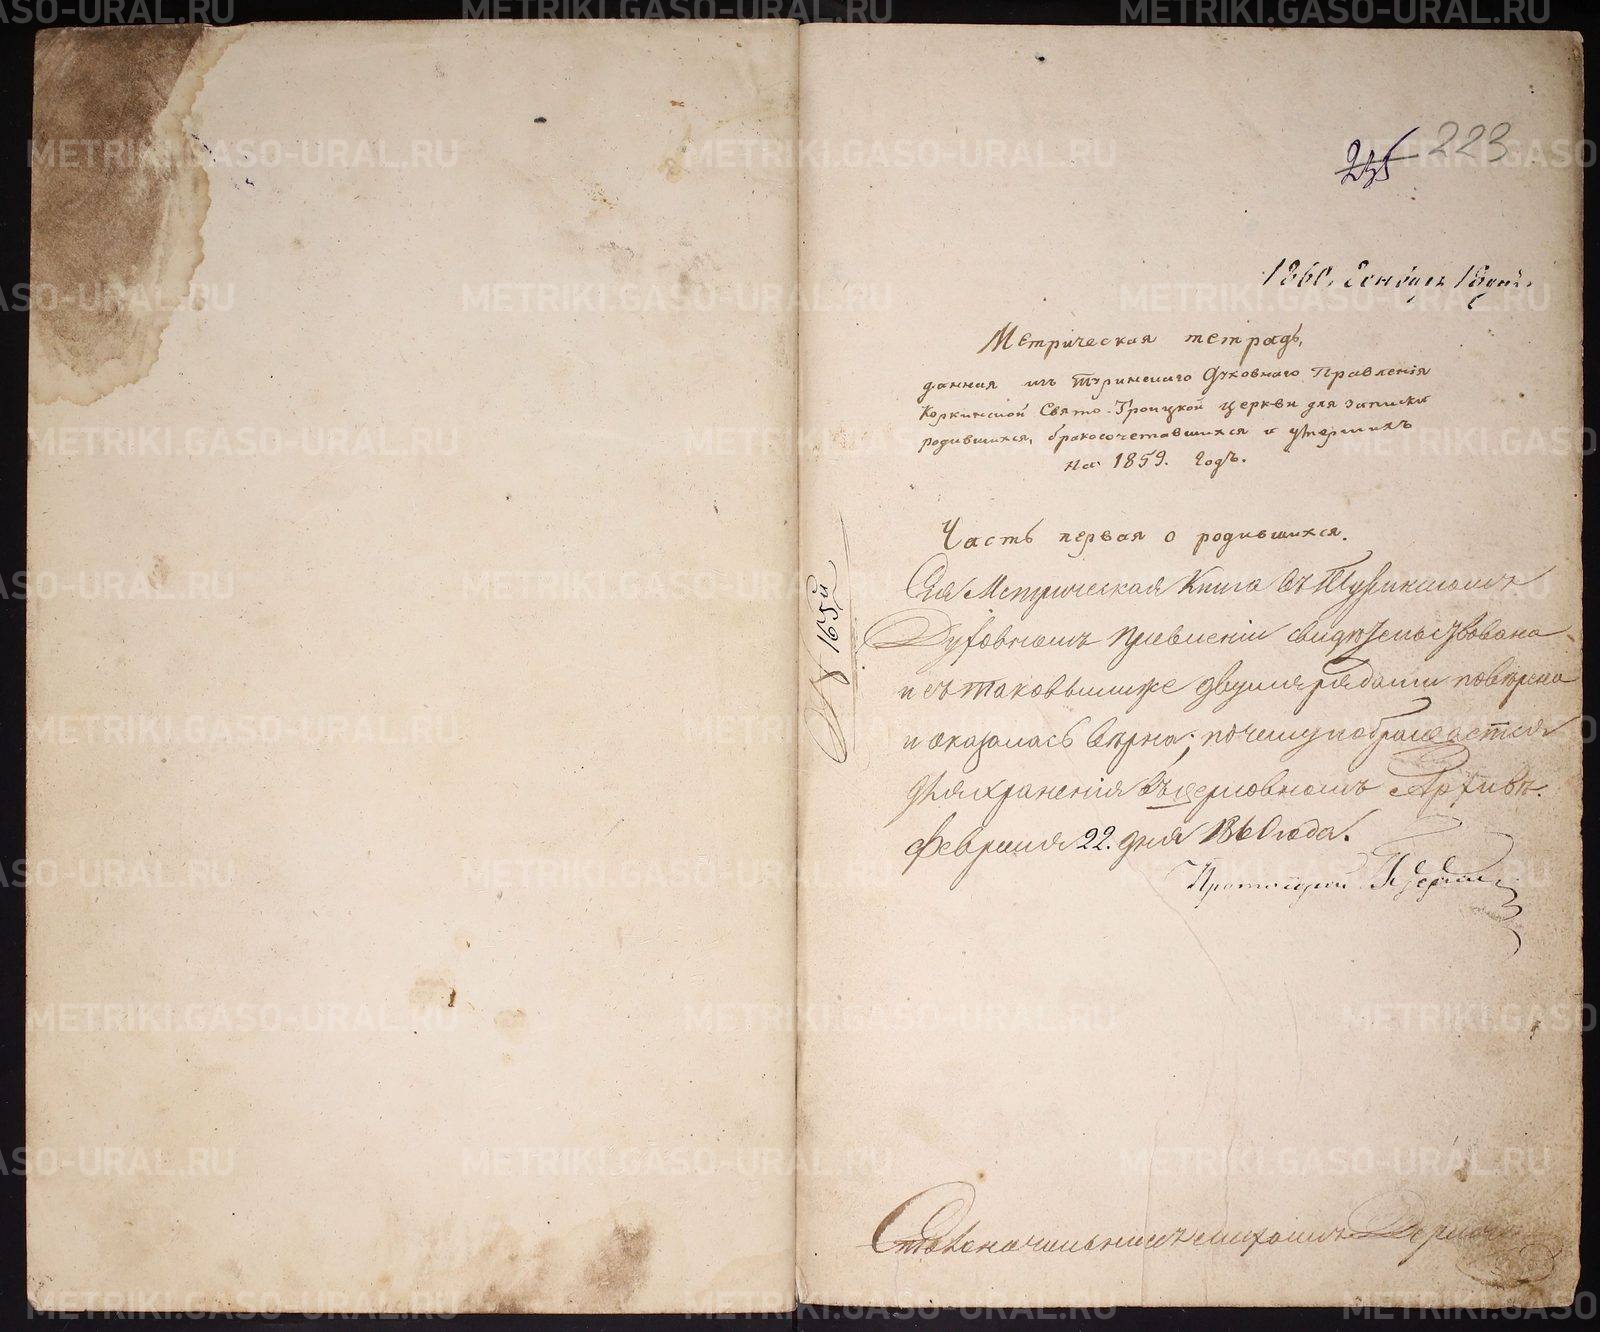 245 223
1860. Генваря 18 дня.
Метрическая тетрадь,
данная изъ Туринскаго Духовнаго Правленія
Коркинской Свято-Троицкой церкви для записки
родившихся, бракосочетавшихся и умершихъ
на 1859. годъ.
Часть первая о родившихся.
Сія Метрическая Книга въ Туринскомъ
Духовномъ Правленіи свидѣтельствована
и съ таковымиже двумя рядами повѣрена
и оказалась вѣрна; почему и обращается
для храненія въ церковномъ Архивѣ.
Февраля 22. дня 1860 года.
Протоіерей
№ 165й
Столоначальникъ
METRIKI.GASO-URAL.RU